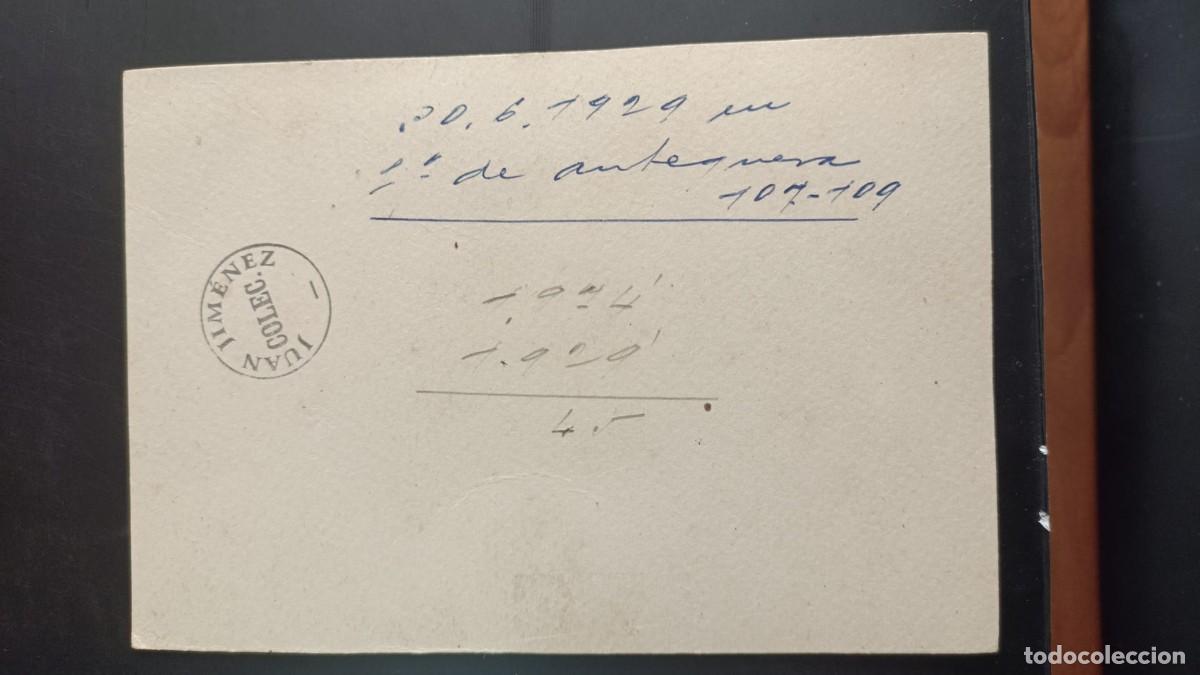 30.6.1929 en
de antequera
107-109
JUAN JIMÉNEZ
COLEC.
1.929
45
todocoleccion